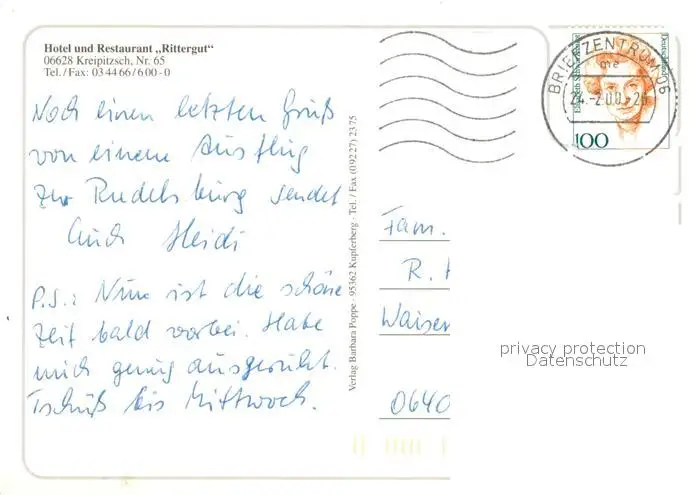 Hotel und Restaurant „Rittergut“
06628 Kreipitzsch, Nr. 65
Tel. / Fax: 03 44 66 / 6 00 - 0
Noch einen letzten Gruß
von einem Ausflug
zur Rudelsburg sendet
Euch Heidi
P.S.: Nun ist die schöne
Zeit bald vorbei. Habe
mich genug ausgeruht.
Tschüß bis Mittwoch.
Verlag Barbara Poppe · 95362 Kupferberg · Tel. / Fax (0 92 27) 23 75
BRIEFZENTRUM 06
Deutschland
100
Fam.
R.
Waisen
0640
privacy protection
Datenschutz